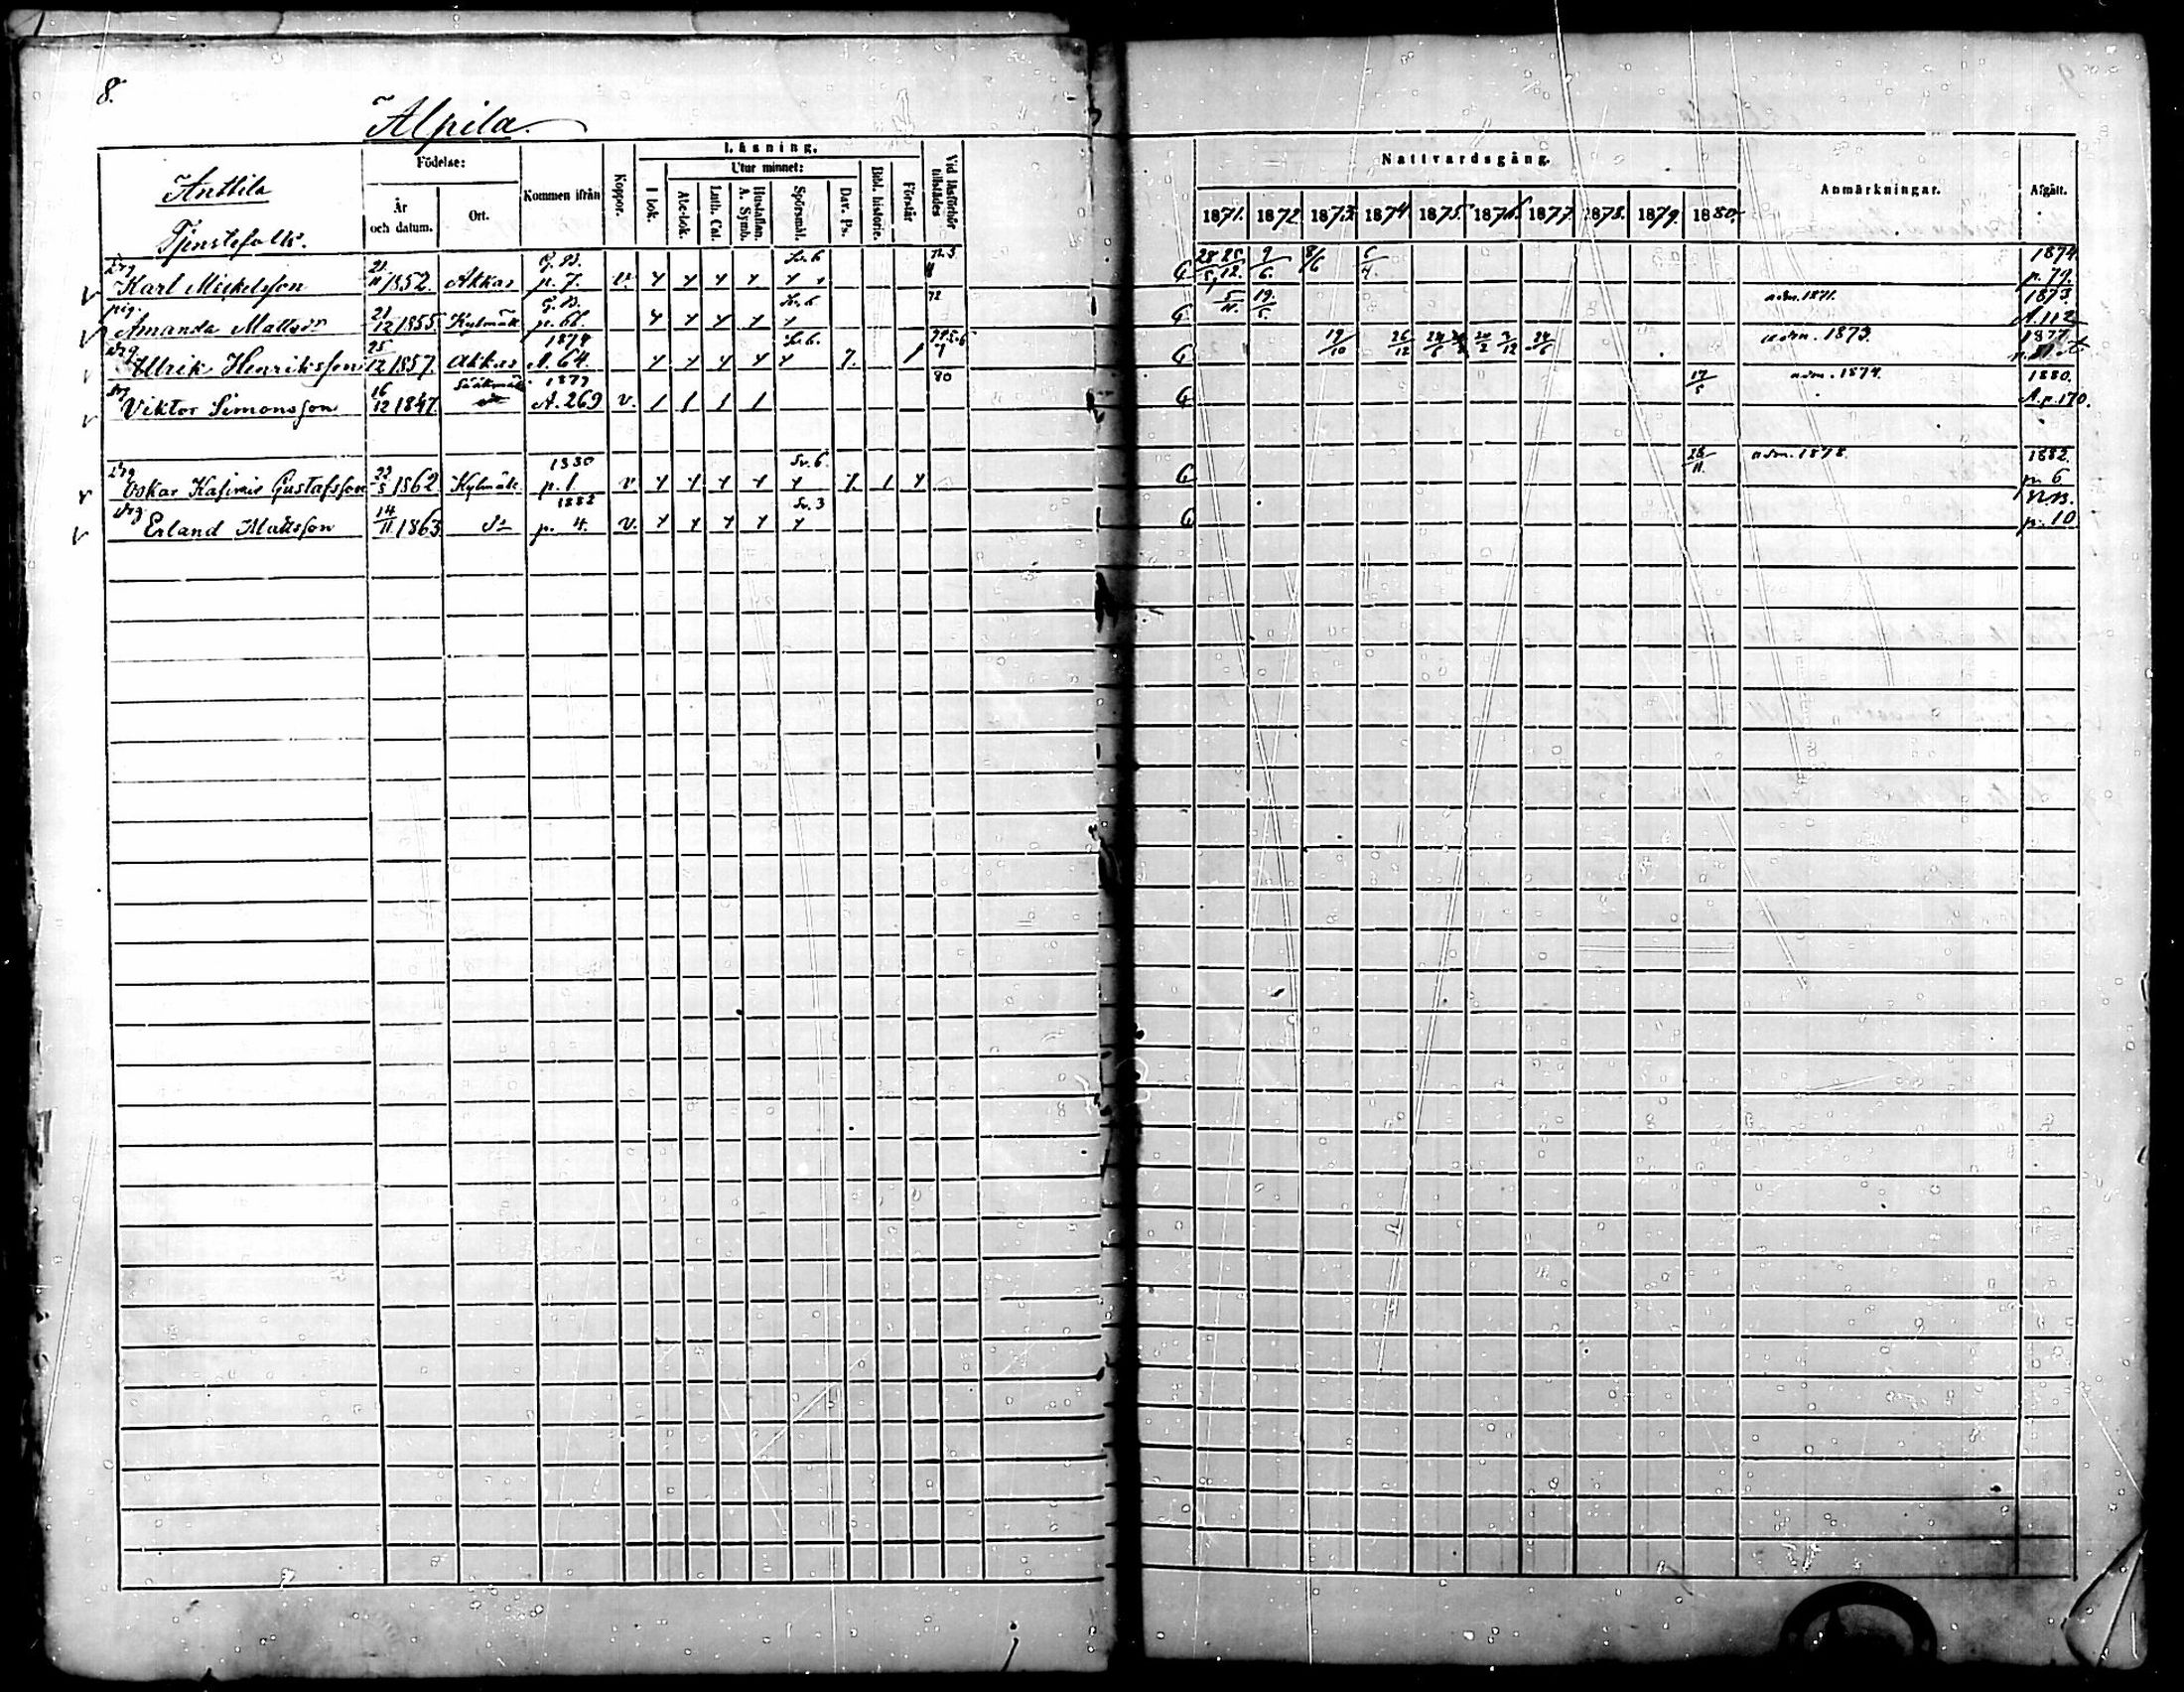 8.
Alpila.
Anttila
Tjenstefolk.
Födelse:
År och datum.
Ort.
Kommen ifrån
Koppor.
Läsning.
I bok.
Utur minnet:
Abc-bok.
Luth. Cat.
Hustaflan. A. Symb.
Spörsmål.
Dav. Ps.
Bibl. historie.
Förstår
Vid läsförhör tillstädes
Nattvardsgång.
1871. 1872. 1873 1874 1875 1876 1877 1878. 1879. 1880.
Anmärkningar.
Afgått.
drg Karl Mickelsson 21/11 1852. Akkas G.B. p. 7. v. Sv. 6 72.3 G 9/6. 8/6 1874 p. 79.
pig. Amanda Mattsdr 21/12 1855 Kylmäk G.B. p. 68. Sv. 6 72 G 5/11. 19/5 adm. 1871. 1873. A. 112
drg Ulrik Henriksson 25/12 1857. Akkas 1874 A. 64. Sv. 6. 7. G 19/10 26/12 24/6 adm. 1873. 1877
drg Viktor Simonsson 16/12 1847. Sääksmäk 1879 A. 269 v. 80 G 17/5 adm. 1874. 1880. A. p. 170.
drg Oskar Kasimir Gustafsson 22/5 1862 Kylmäk. 1880 p. 1. v Sv. 6. 7. G 28/11. adm. 1878. 1882. p. 6
drg Erland Mattsson 14/11 1863 1882 p. 4. v. Sv. 3 G N.B. p. 10